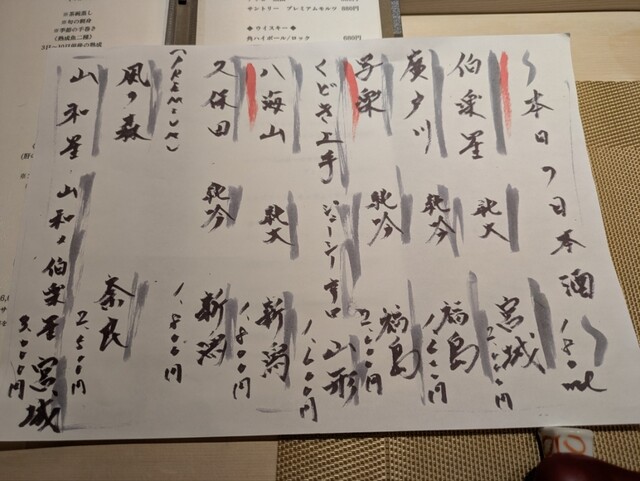 〜本日の日本酒〜 180ml
伯楽星 純大 宮城 2,000円
廣戸川 純吟 福島 1,600円
写楽 純吟 福島 2,000円
くどき上手 ジューシー辛口 山形 1,600円
八海山 純大 新潟 1,800円
久保田 純吟 新潟 1,800円
(PREMIUM)
風の森 奈良 2,500円
山和星 山和×伯楽星 宮城 3,000円
サントリー プレミアムモルツ 880円
◆ウイスキー◆
角ハイボール/ロック 680円
※茶碗蒸し
※旬の刺身
※季節の手巻き
(熟成魚二種)